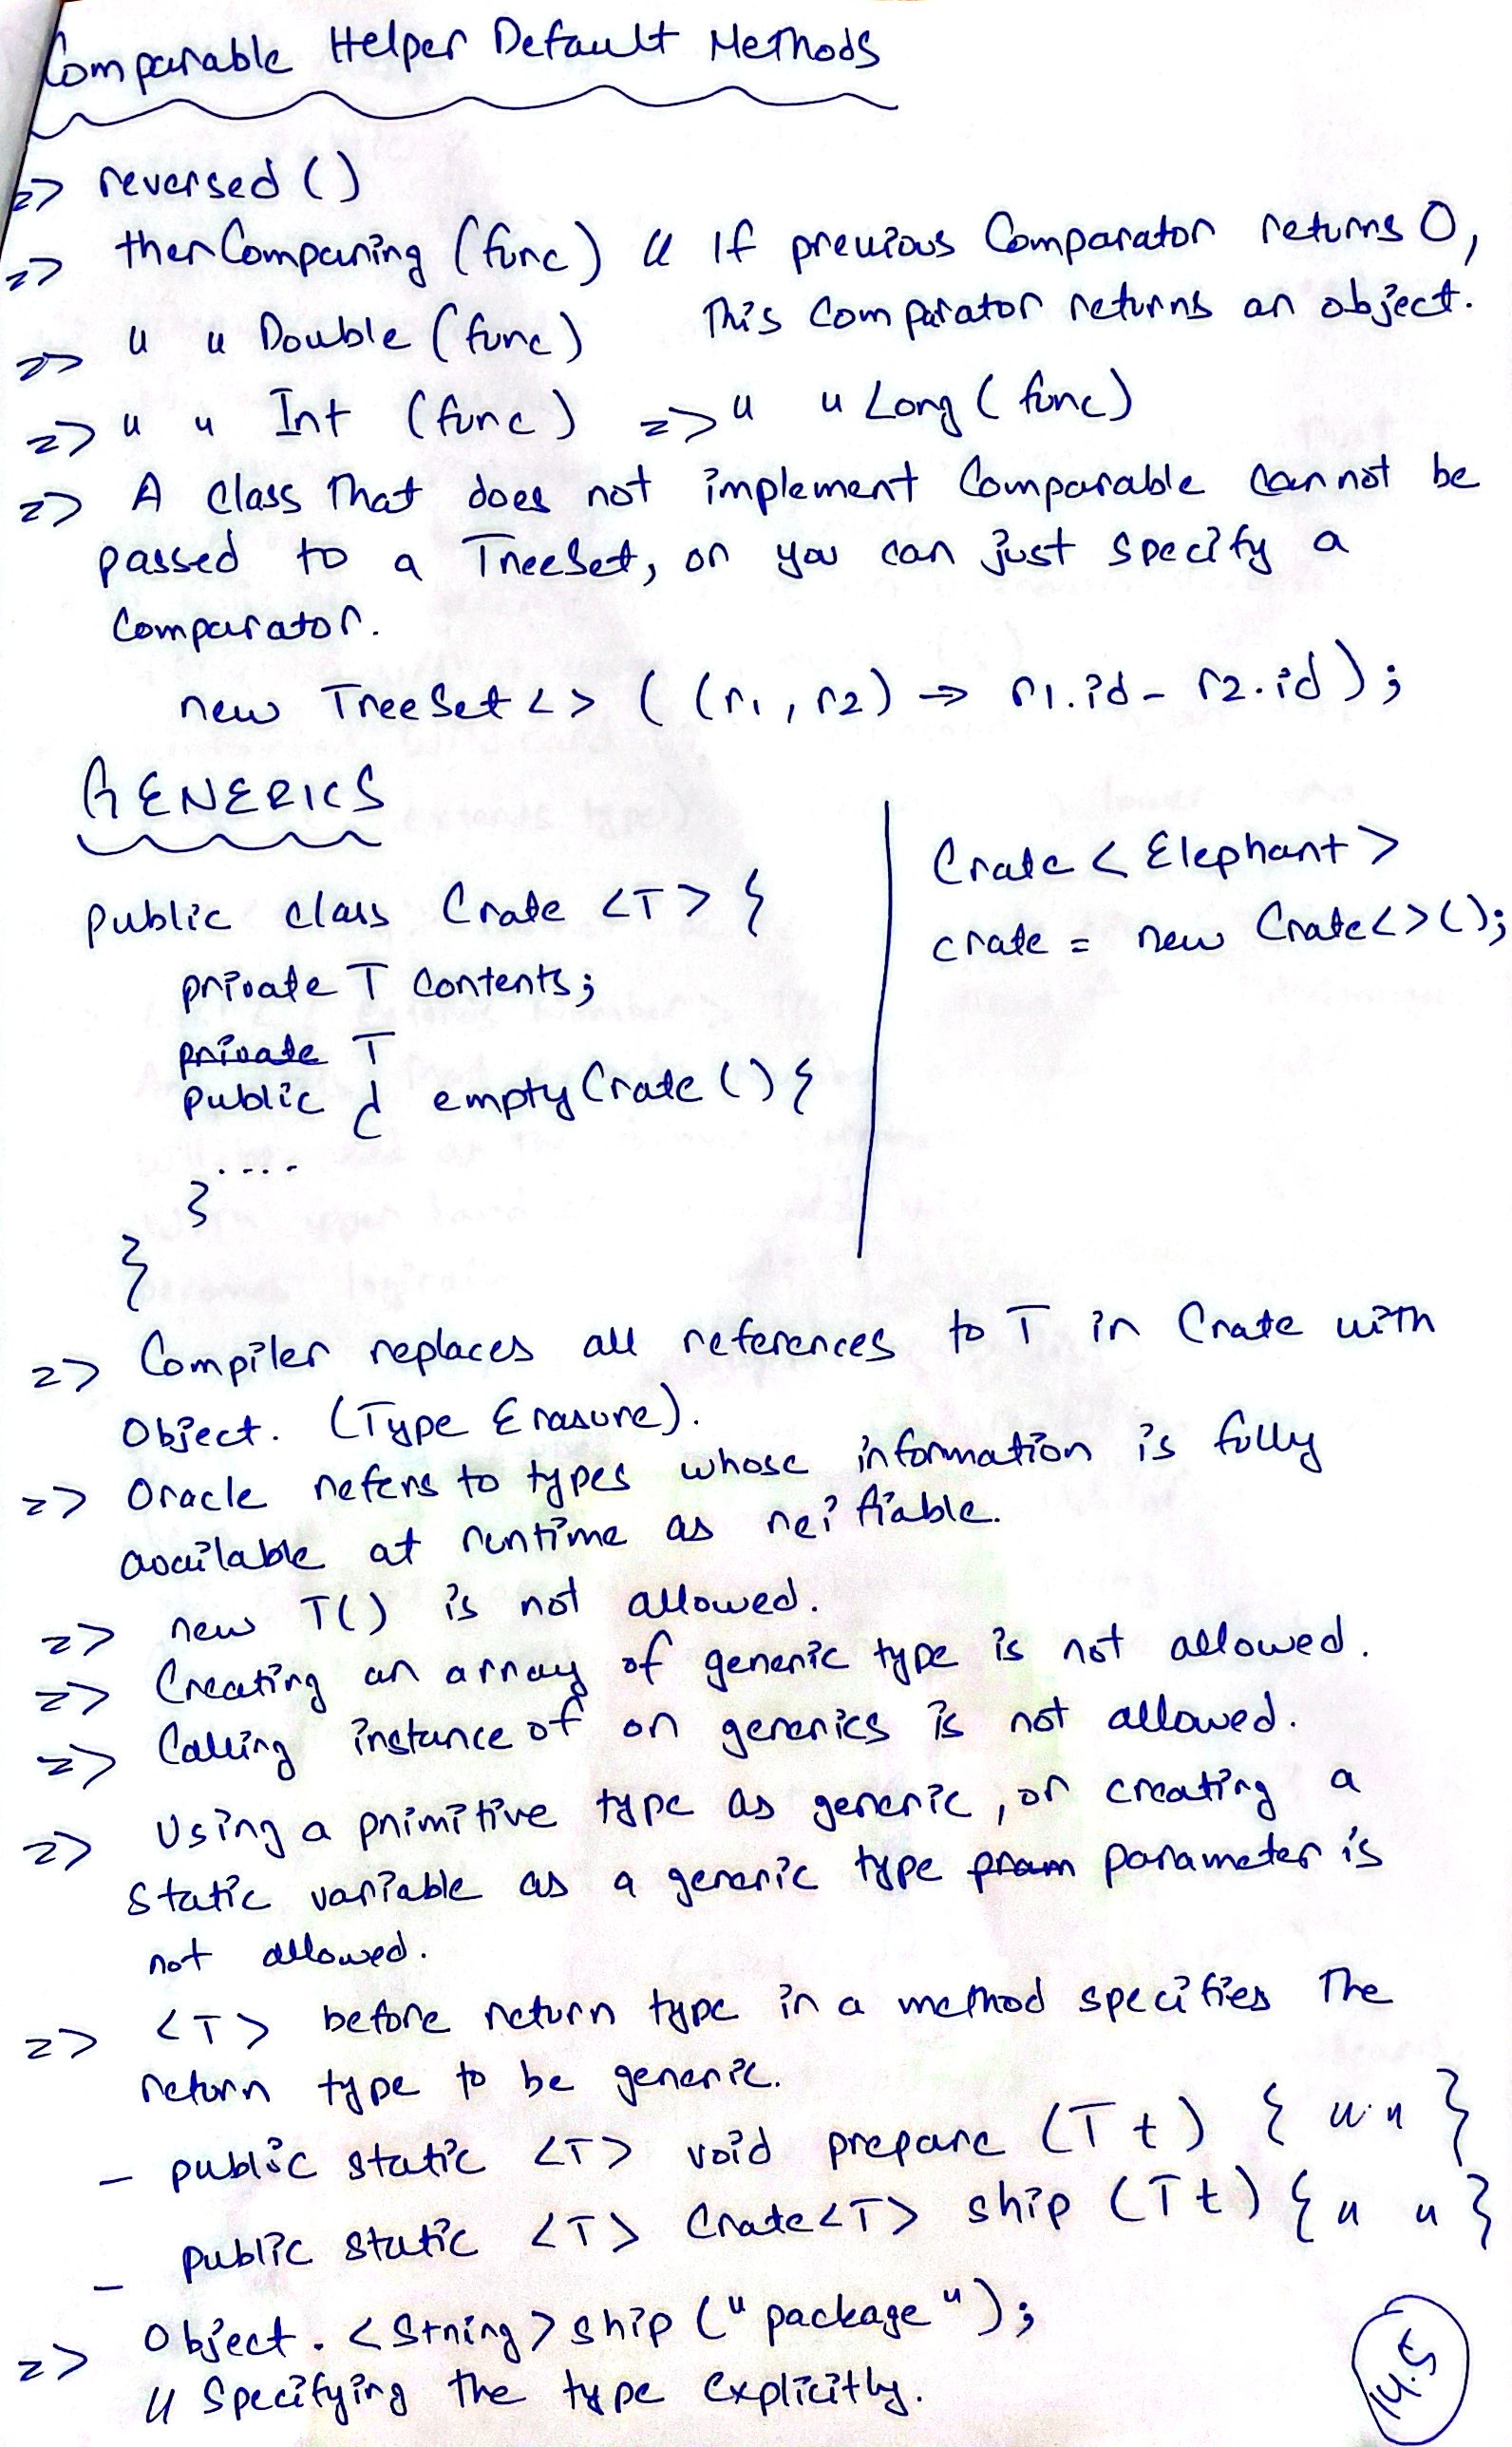 Comparable Helper Default Methods
=> reversed ()
=> thenComparing (func) // If previous Comparator returns 0,
This comparator returns an object.
=> " " Double (func)
=> " " Int (func) => " " Long (func)
=> A class that does not implement Comparable cannot be
passed to a TreeSet, or you can just specify a
Comparator.
new TreeSet<> ( (r1, r2) -> r1.id - r2.id );
GENERICS
public class Crate <T> {
private T contents;
private T
public T emptyCrate () {
....
}
}
Crate < Elephant >
crate = new Crate<>();
=> Compiler replaces all references to T in Crate with
Object. (Type Erasure).
=> Oracle refers to types whose information is fully
available at runtime as reifiable.
=> new T() is not allowed.
=> Creating an array of generic type is not allowed.
=> Calling instance of on generics is not allowed.
=> Using a primitive type as generic, or creating a
static variable as a generic type pram parameter is
not allowed.
=> <T> before return type in a method specifies the
return type to be generic.
- public static <T> void prepare (T t) { " . " }
- public static <T> Crate<T> ship (T t) { " " }
=> Object. <String> ship ("package");
// Specifying the type explicitly.
14.5